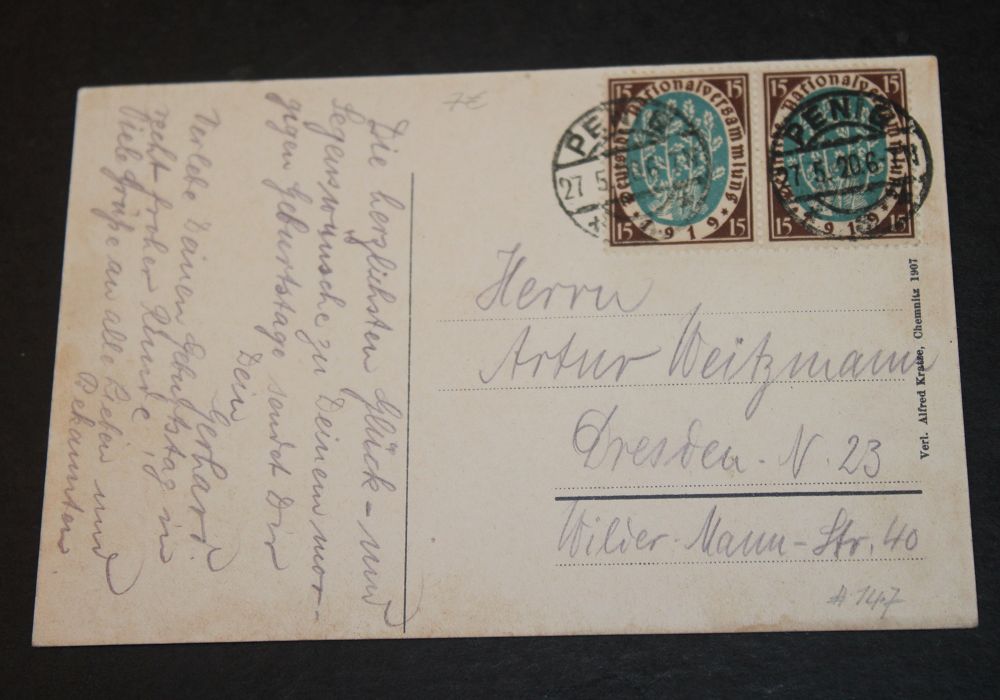 7€
Die herzlichsten Glück- und
Segenswünsche zu Deinem mor-
gigen Geburtstage sendet Dir
Dein
Gerhard.
Verlebe Deinen Geburtstag in
recht froher Runde,
Viele Grüße an alle Lieben und
Bekannten.
15 15
Deutsche Nationalversammlung
15 1919 15
PENIG
27.5.
15 15
Deutsche Nationalversammlung
15 1919 15
PENIG
27.5.20.6
Herrn
Artur Weitzmann
Dresden. N. 23
Wilder-Mann-Str. 40
# 147
Verl. Alfred Kratze, Chemnitz 1907